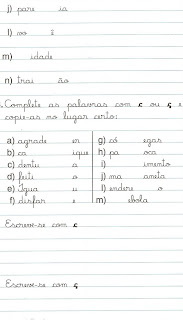 j) pare ia
l) vo ê
m) idade
n) trai ão
. Complete as palavras com c ou ç e
copie-as no lugar certo:
a) agrade er
b) ca ique
c) dentu a
d) feiti o
e) Igua u
f) disfar e
g) có egas
h) pa oca
i) imento
j) ma aneta
l) endere o
m) ebola
Escreve-se com c
Escreve-se com ç